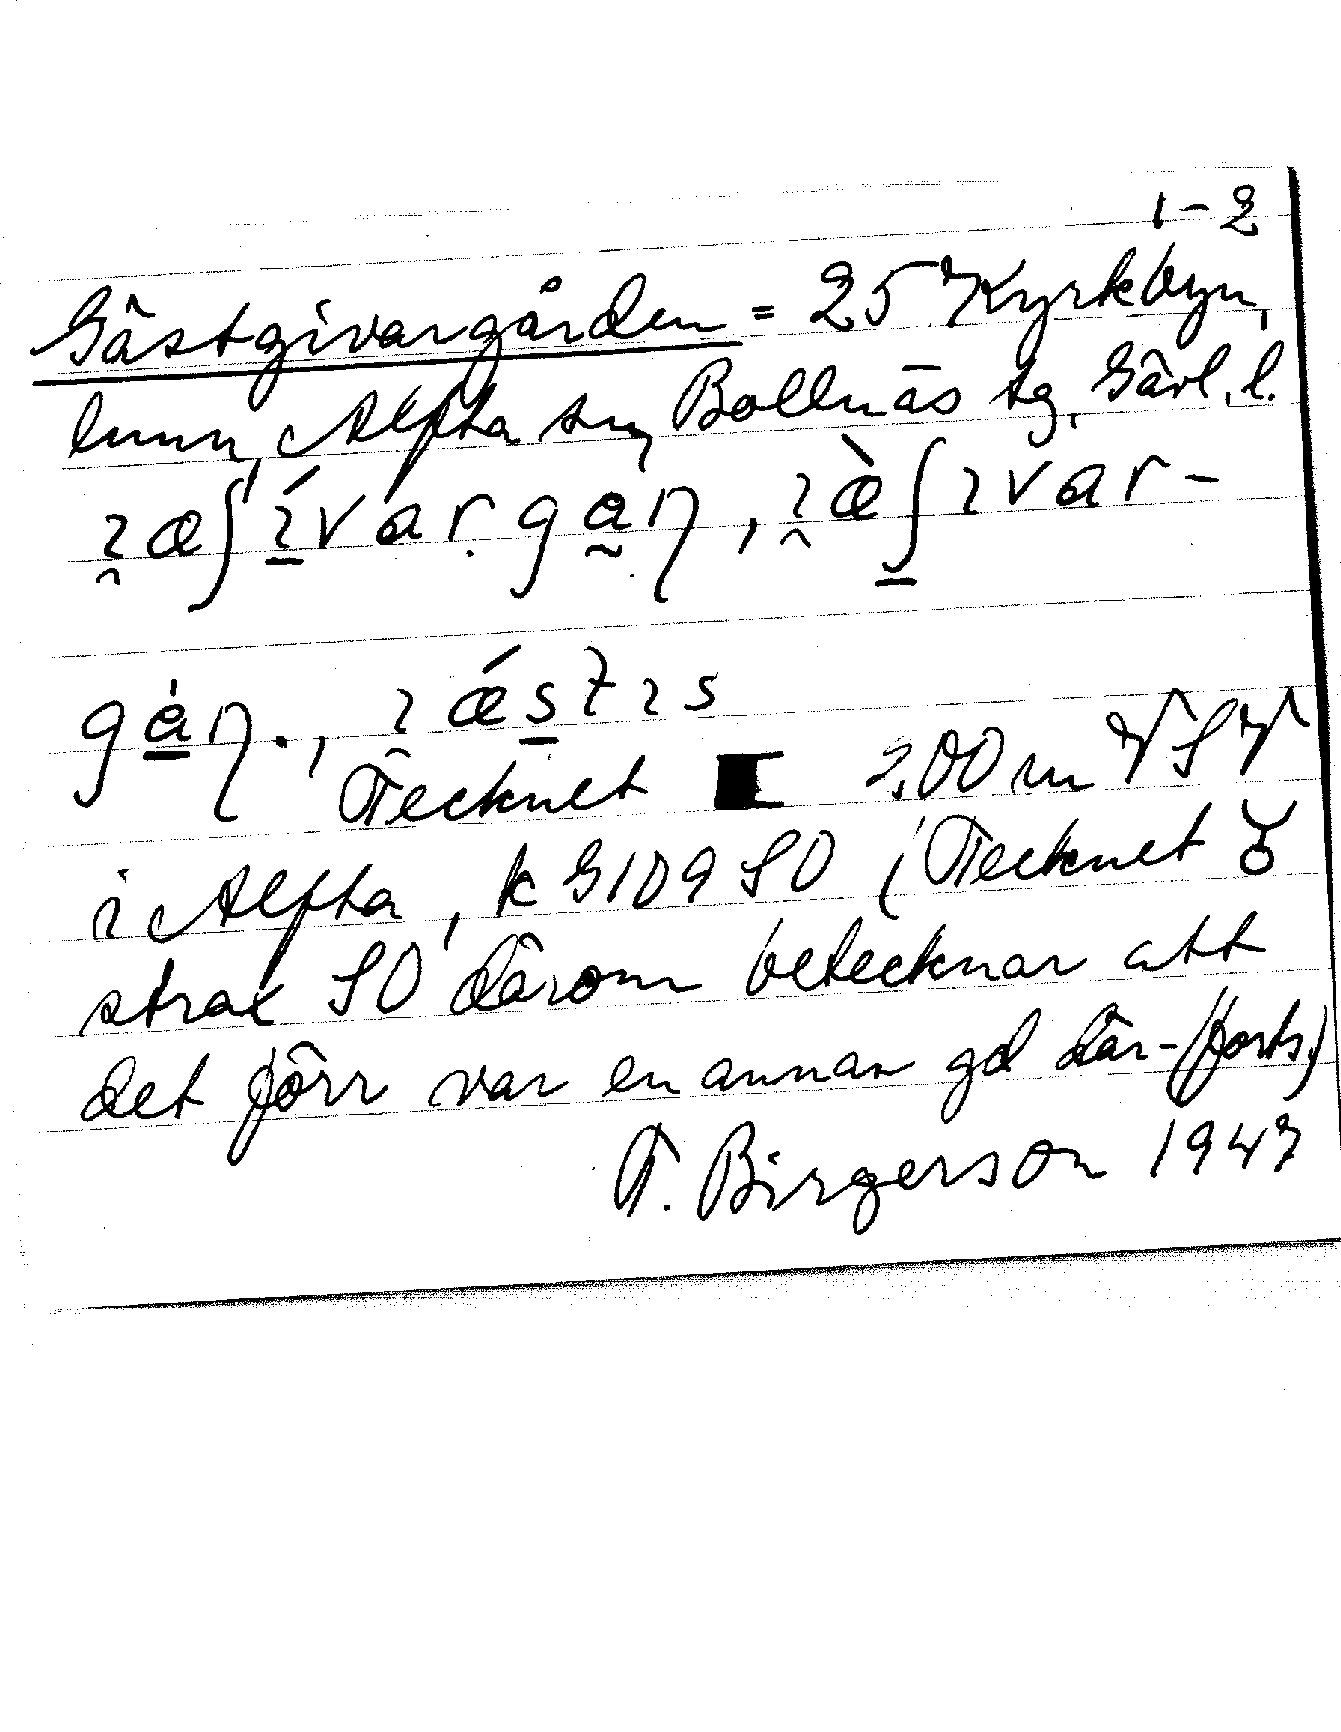 1-2
Gästgivargården = 25 Kyrkbyn,
hmn, Alfta sn, Bollnäs tg, Gävl. l.
gȧη.,
Tecknet 2,00 m VSV
i Alfta, k G109 SO (Tecknet
strax SO därom betecknar att
det förr var en annan gd där-(forts.)
T. Birgerson 1947